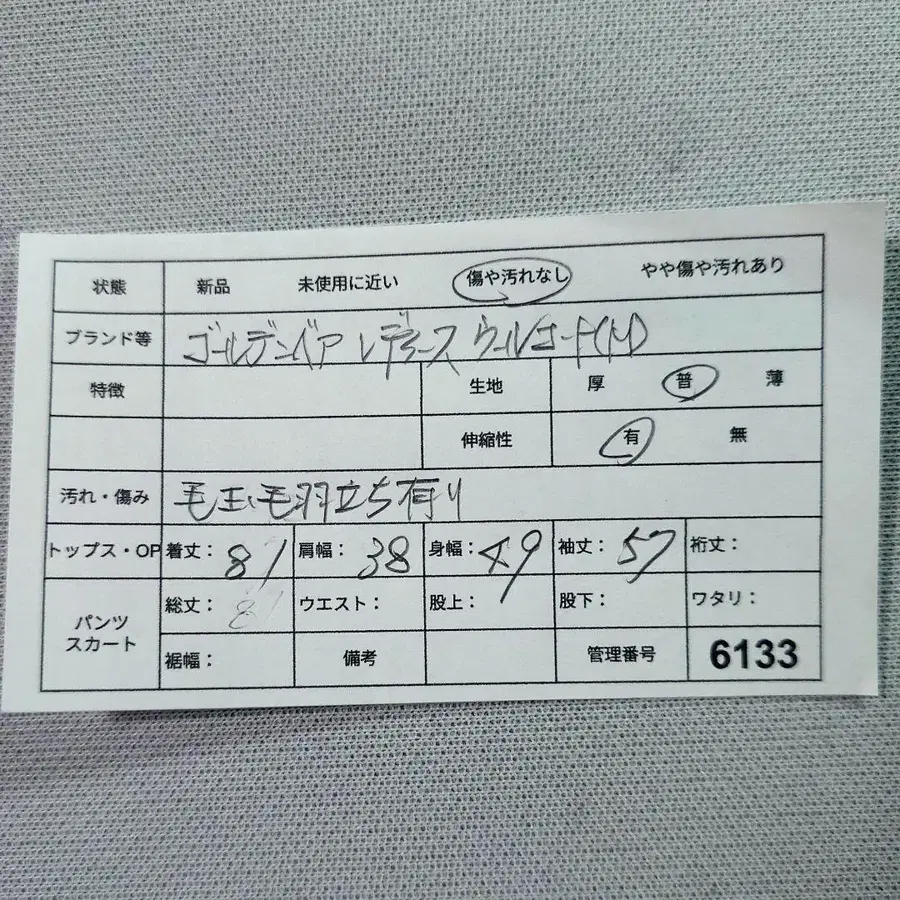 状態 新品 未使用に近い 傷や汚れなし やや傷や汚れあり
ブランド等 ゴールデンベア レディース ウールコート(M)
特徴 生地 厚 普 薄
伸縮性 有 無
汚れ・傷み 毛玉、毛羽立ち有り
トップス・OP 着丈: 81 肩幅: 38 身幅: 49 袖丈: 57 裄丈:
パンツ スカート 総丈: 81 ウエスト: 股上: 股下: ワタリ:
裾幅: 備考 管理番号 6133